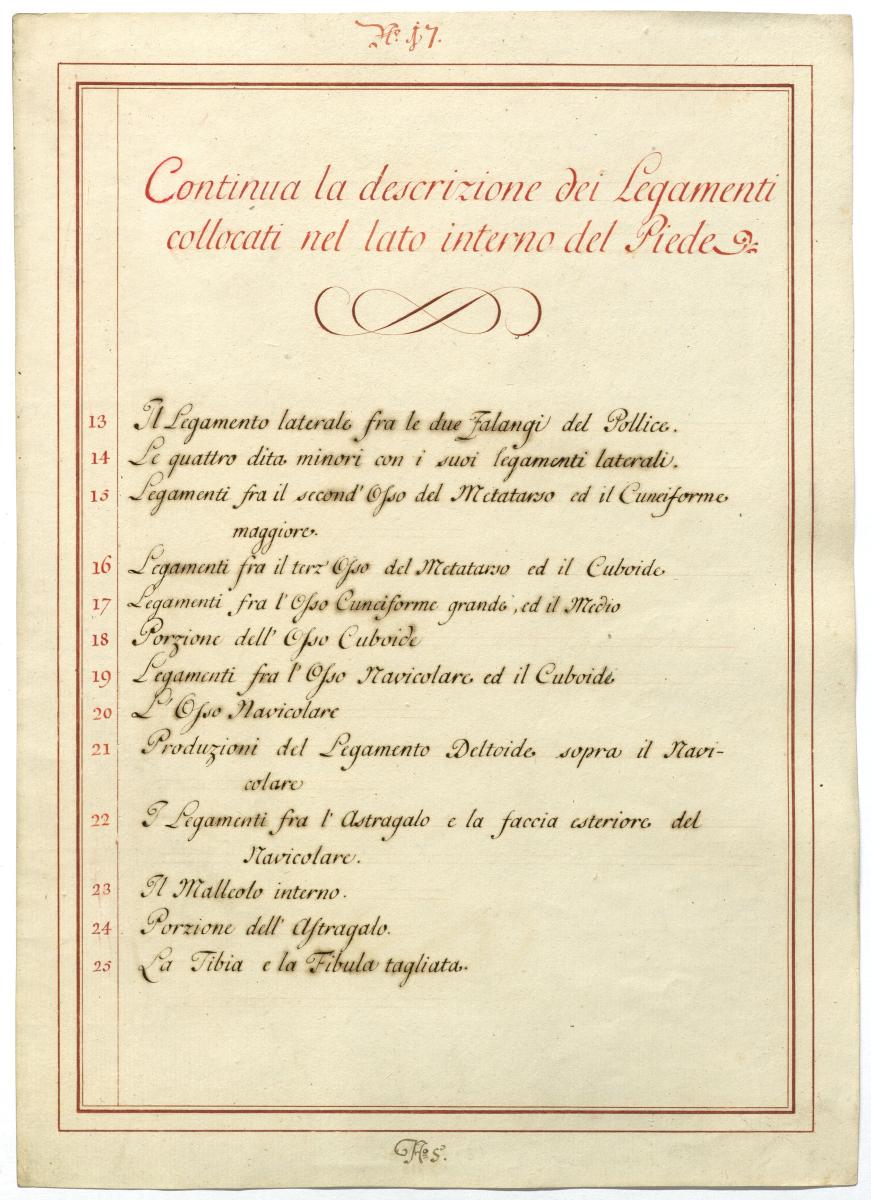 No. 17.
Continua la descrizione dei Legamenti
collocati nel lato interno del Piede
13 Il Legamento laterale fra le due Falangi del Pollice.
14 Le quattro dita minori con i suoi legamenti laterali.
15 Legamenti fra il second' Osso del Metatarso ed il Cuneiforme
maggiore.
16 Legamenti fra il terz' Osso del Metatarso ed il Cuboide
17 Legamenti fra l'Osso Cunciforme grande, ed il Medio
18 Porzione dell' Osso Cuboide
19 Legamenti fra l' Osso Navicolare ed il Cuboide
20 L' Osso Navicolare
21 Produzioni del Legamento Deltoide sopra il Navi-
colare
22 I Legamenti fra l' Astragalo e la faccia esteriore del
Navicolare.
23 Il Malleolo interno.
24 Porzione dell' Astragalo.
25 La Tibia e la Fibula tagliata.
No. 5.